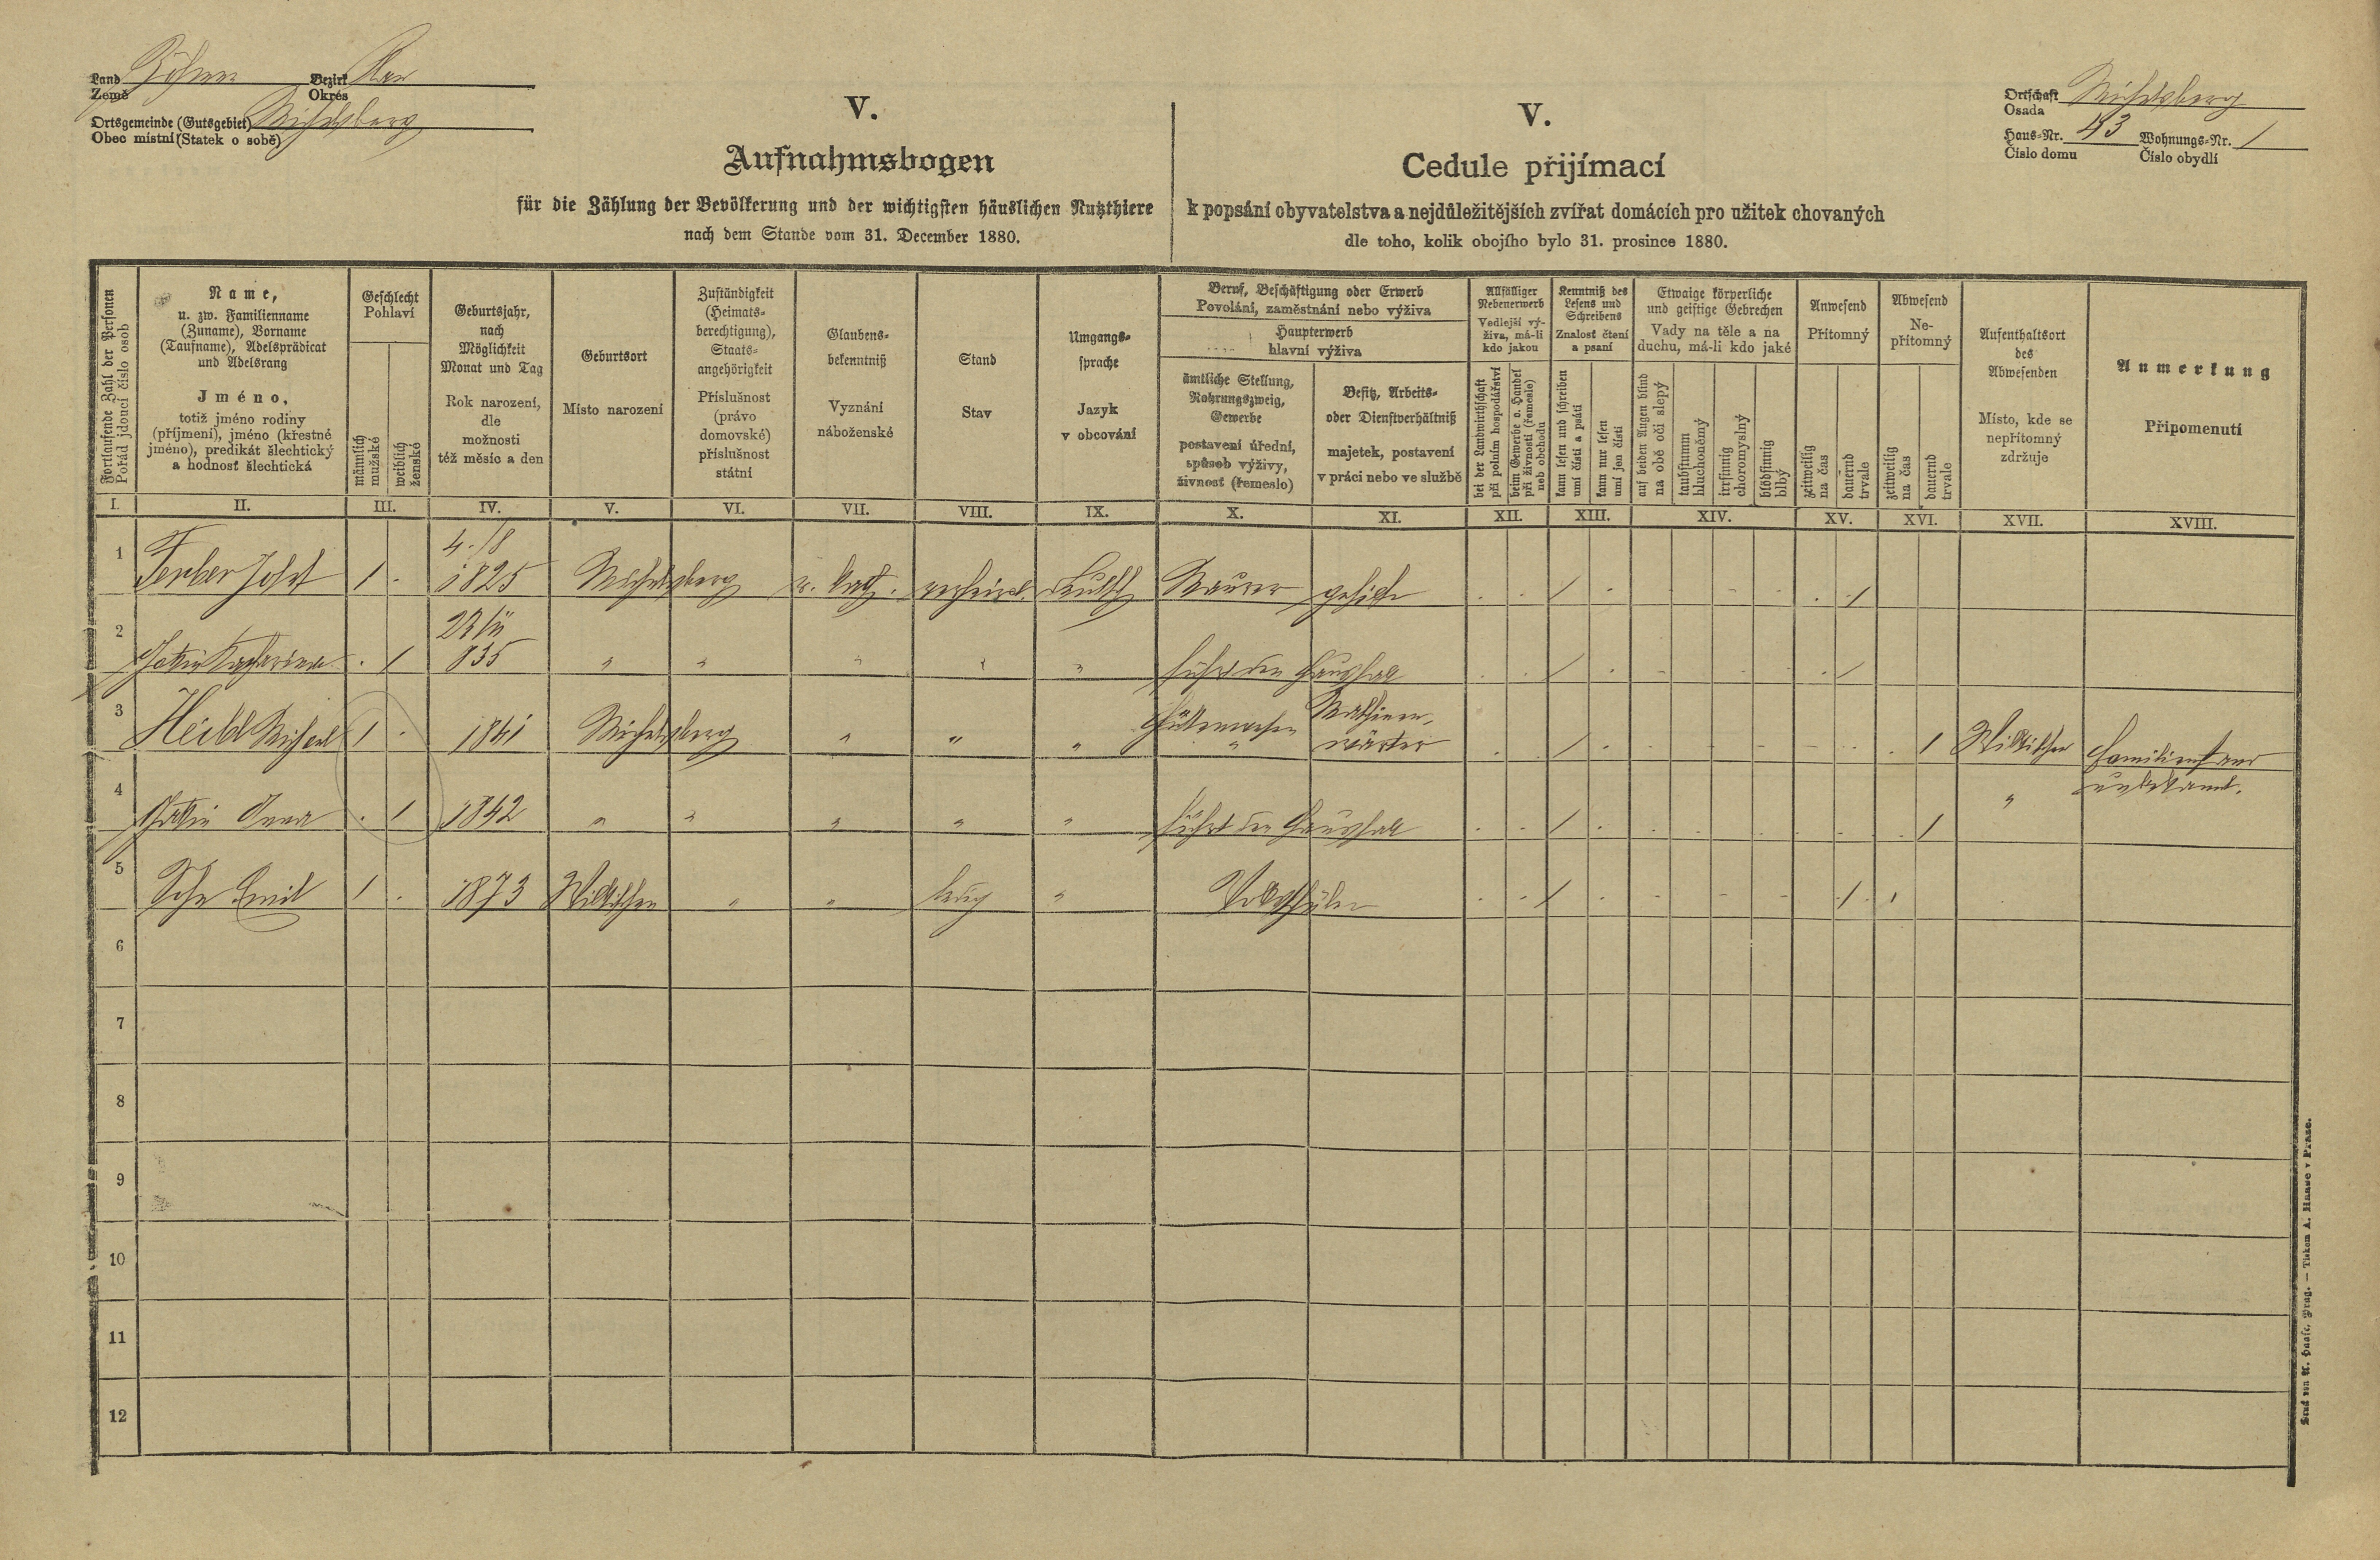 Land Böhmen Bezirk Plan
Země Okrés
Ortsgemeinde (Gutsgebiet) Michelsberg
Obec místní (Statek o sobě)
Ortschaft Michelsberg
Osada
Haus-Nr. 43 Wohnungs-Nr. 1
Číslo domu Číslo obydlí
V.
Aufnahmsbogen
für die Zählung der Bevölkerung und der wichtigsten häuslichen Nutzthiere
nach dem Stande vom 31. December 1880.
V.
Cedule přijímací
k popsání obyvatelstva a nejdůležitějších zvířat domácích pro užitek chovaných
dle toho, kolik obojího bylo 31. prosince 1880.
Fortlaufende Zahl der Personen
Pořád jdoucí číslo osob
Name,
u. zw. Familienname
(Zuname), Vorname
(Taufname), Adelsprädicat
und Adelsrang
Jméno,
totiž jméno rodiny
(příjmení), jméno (křestné
jméno), predikát šlechtický
a hodnosť šlechtická
Geschlecht
Pohlaví
männlich
mužské
weiblich
ženské
Geburtsjahr,
nach
Möglichkeit
Monat und Tag
Rok narození,
dle
možnosti
též měsíc a den
Geburtsort
Místo narození
Zuständigkeit
(Heimats-
berechtigung),
Staats-
angehörigkeit
Příslušnost
(právo
domovské)
příslušnost
státní
Glaubens-
bekenntniß
Vyznání
náboženské
Stand
Stav
Umgangs-
sprache
Jazyk
v obcování
Beruf, Beschäftigung oder Erwerb
Povolání, zaměstnání nebo výživa
Haupterwerb
hlavní výživa
ämtliche Stellung,
Nahrungszweig,
Gewerbe
postavení úřední,
spůsob výživy,
živnost (řemeslo)
Besitz, Arbeits-
oder Dienstverhältniß
majetek, postavení
v práci nebo ve službě
Allfälliger
Nebenerwerb
Vedlejší vý-
živa, má-li
kdo jakou
bei der Landwirthschaft
při polním hospodářství
beim Gewerbe o. Handel
při živnosti (řemesle)
neb obchodu
Kenntniß des
Lesens und
Schreibens
Znalosť čtení
a psaní
kann lesen und schreiben
umí čísti a psáti
kann nur lesen
umí jen čísti
Etwaige körperliche
und geistige Gebrechen
Vady na těle a na
duchu, má-li kdo jaké
auf beiden Augen blind
na obě oči slepý
taubstumm
hluchoněmý
irrsinnig
choromyslný
blödsinnig
blbý
Anwesend
Přítomný
zeitweilig
na čas
dauernd
trvale
Abwesend
Ne-
přítomný
zeitweilig
na čas
dauernd
trvale
Aufenthaltsort
des
Abwesenden
Místo, kde se
nepřítomný
zdržuje
Anmerkung
Připomenutí
I. II. III. IV. V. VI. VII. VIII. IX. X. XI. XII. XIII. XIV. XV. XVI. XVII. XVIII.
4./8
1 Ferber Josef 1 . 1825 Michelsberg r. kath. verheirat. deutsch Maurer gehilfe . . / . . /
2 Gattin Katharina . 1 835 " " " " " führt den Haushalt . . / . . /
3 Heidl Michael 1 . 1841 Michelsberg " " " Hüttenwesen Maschinen-
wärter . / . . 1 Willkischen Familienstand
unbekannt.
4 Gattin Anna . 1 1842 " " " " " führt den Haushalt . . / . . / "
5 Sohn Emil 1 . 1873 Willkischen " " ledig " Volksschüler . . / . /
6
7
8
9
10
11
12
Druck von A. Haase, Prag. — Tiskem A. Haase v Praze.